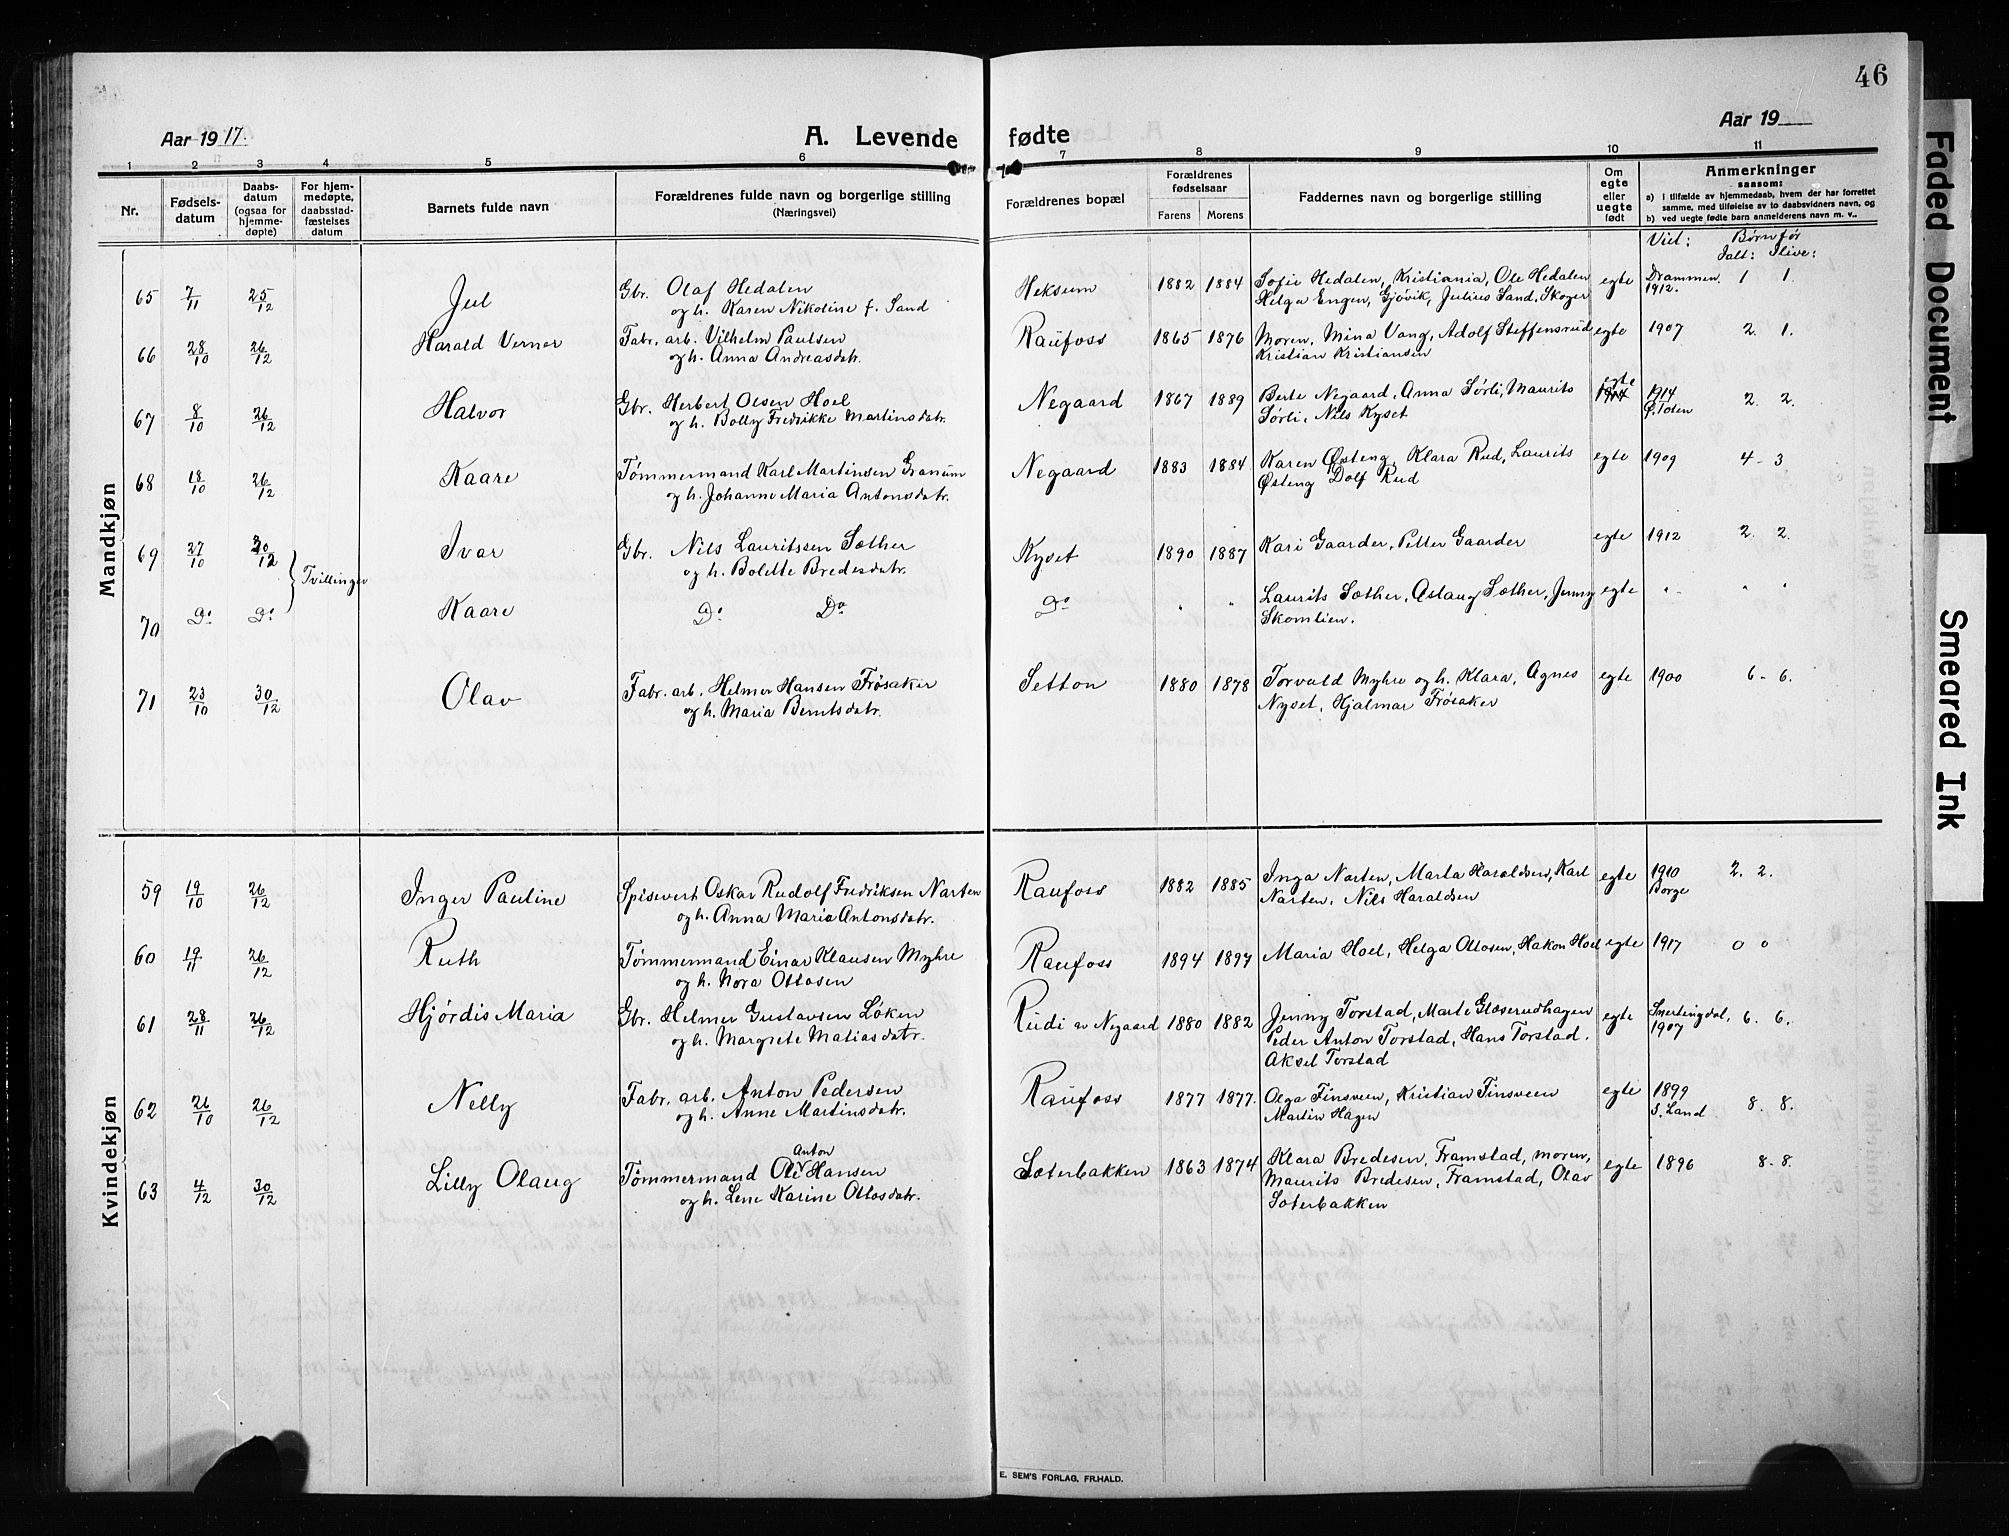 46
Aar 1917.
A. Levende fødte
Aar 19
1 2 3 4 5 6 7 8 9 10 11
Nr.
Fødsels-
datum
Daabs-
datum
(ogsaa for
hjemme-
døpte)
For hjem-
medøpte,
daabsstad-
fæstelses
datum
Barnets fulde navn
Forældrenes fulde navn og borgerlige stilling
(Næringsvei)
Forældrenes bopæl
Forældrenes
fødselsaar
Farens Morens
Faddernes navn og borgerlig stilling
Om
egte
eller
uegte
født
Anmerkninger
saasom:
a) i tilfælde av hjemmedaab, hvem der har forrettet
samme, med tilføielse av to daabsvidners navn, og
b) ved uegte fødte barn anmelderens navn m. v..
Viet: Børn før
Ialt: Ilive:
Mandkjøn
65 7/11 25/12 Jul Gbr. Olaf Hedalen Heksum 1882 1884 Sofie Hedalen, Kristiania, Ole Hedalen egte Drammen 1 1.
og h. Karen Nikoline f. Sand Helga Engen, Gjøvik, Julius Sand, Skoger 1912.
66 28/10 26/12 Harald Verner Fabr. arb. Vilhelm Paulsen Raufoss 1865 1876 Moren, Mina Vang, Adolf Steffensrud egte 1907 2. 1.
og h. Anna Andreasdatr. Kristian Kristiansen
67 8/10 26/12 Halvor Gbr. Herbert Olsen Hoel Negaard 1867 1889 Berte Negaard, Anna Sørli, Maurits egte 1914 2. 2.
og h. Bolly Fredrikke Martinsdatr. Sørli, Nils Kyset Ø. Toten
68 18/10 26/12 Kaare Tømmermand Karl Martinsen Granum Negaard 1883 1884. Karen Østeng, Klara Rud, Laurits egte 1909 4 - 3
og h. Johanne Maria Antonsdatr. Østeng Dolf Rud
69 27/10 30/12 Tvillinger Ivar Gbr. Nils Lauritssen Sæther Kyset 1890 1887 Kari Gaarder, Petter Gaarder egte 1912 2. 2.
og h. Bolette Bredesdatr.
70 Do Do Kaare Do Do Do " " Laurits Sæther, Aslaug Sæther, Jenny egte " " "
Skomlien.
71 23/10 30/12 Olav Fabr. arb. Helmer Hansen Frøsaker Setton 1880 1878 Torvald Myhre og h. Klara, Agnes egte 1900 6 - 6.
og h. Maria Berntsdatr. Nyset, Hjalmar Frøsaker
Kvindekjøn
59 19/10 26/12 Inger Pauline Spisevert Oskar Rudolf Fredriksen Narten Raufoss 1882 1885 Inga Narten, Marta Haraldsen, Karl egte 1910 2. 2.
og h. Anna Maria Antonsdatr. Narten, Nils Haraldsen Borge
60 19/11 26/12 Ruth Tømmermand Einar Klausen Myhre Raufoss 1894 1897 Maria Hoel, Helga Ottosen, Hakon Hoel egte 1917 0 0
og h. Nora Ottosen
61 28/11 26/12 Hjørdis Maria Gbr. Helmer Gustavsen Løken Rudi v Negaard 1880 1882 Jenny Torstad, Marte Glæserudhagen egte Snertingdal, 6. 6.
og h. Margrete Matiasdatr. Peder Anton Torstad, Hans Torstad. 1907
Aksel Torstad
62 26/10 26/12 Nelly Fabr. arb. Anton Pedersen Raufoss 1877 1877. Olga Finsveen, Kristian Finsveen egte 1899 8. 8.
og h. Anne Martinsdatr. Martin Hagen S. Land
63 4/12 30/12 Lilly Olaug Tømmermand Ole Anton Hansen Sæterbakken 1863 1874 Klara Bredesen, Framstad, moren, egte 1896 8 - 8.
og h. Lene Karine Ottosdatr. Maurits Bredesen, Framstad, Olav
Sæterbakken
E. SEM'S FORLAG, FR.HALD.
Faded Document
Smeared Ink